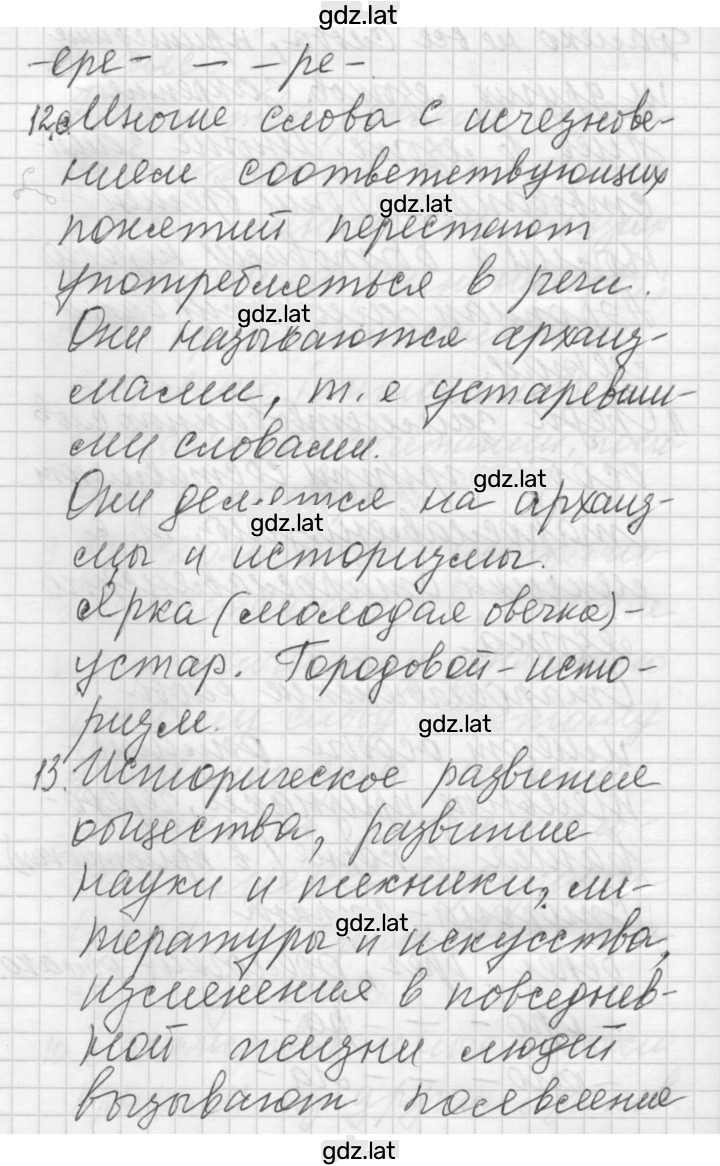 gdz.lat
-ере- — -ре-.
12. Многие слова с исчезнове-
нием соответствующих
gdz.lat
понятий перестают
употребляться в речи.
gdz.lat
Они называются архаиз-
мами, т. е устаревши-
ми словами.
gdz.lat
Они делятся на архаиз-
gdz.lat
мы и историзмы.
Ярка (молодая овечка) -
устар. Городовой - исто-
ризм.
gdz.lat
13. Историческое развитие
общества, развитие
науки и техники, ли-
gdz.lat
тературы и искусства,
изменения в повседнев-
ной жизни людей
вызывают появление
gdz.lat